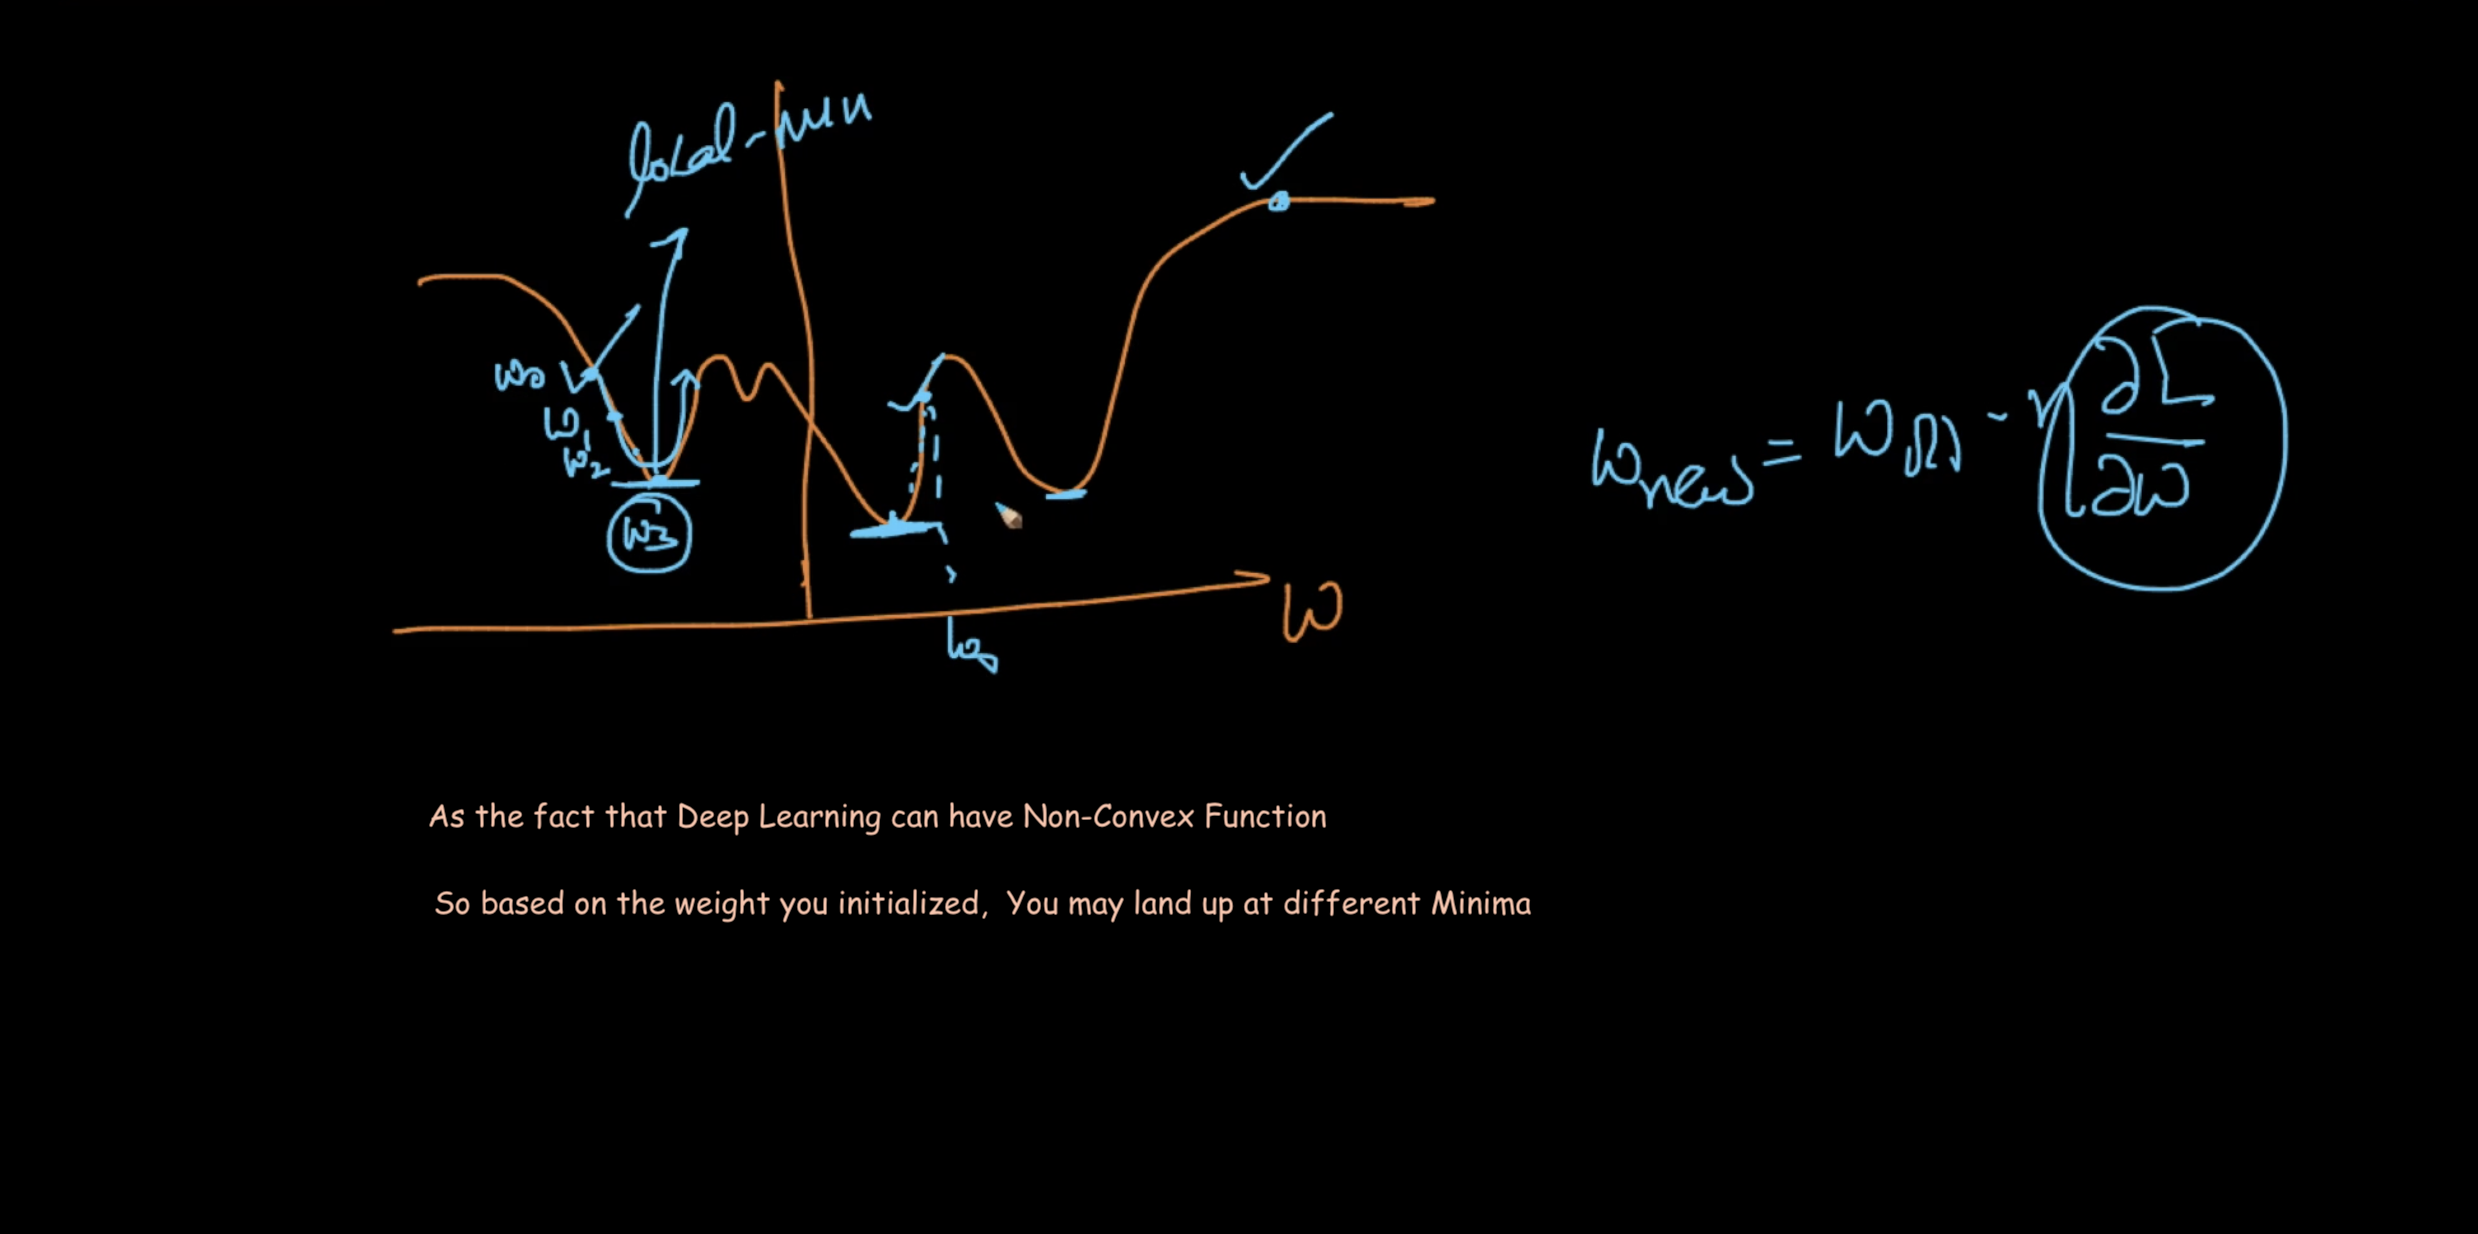 local-min
w0
w1
w2
w3
w0
W
Wnew = Wold - η ∂L/∂w
As the fact that Deep Learning can have Non-Convex Function
So based on the weight you initialized, You may land up at different Minima